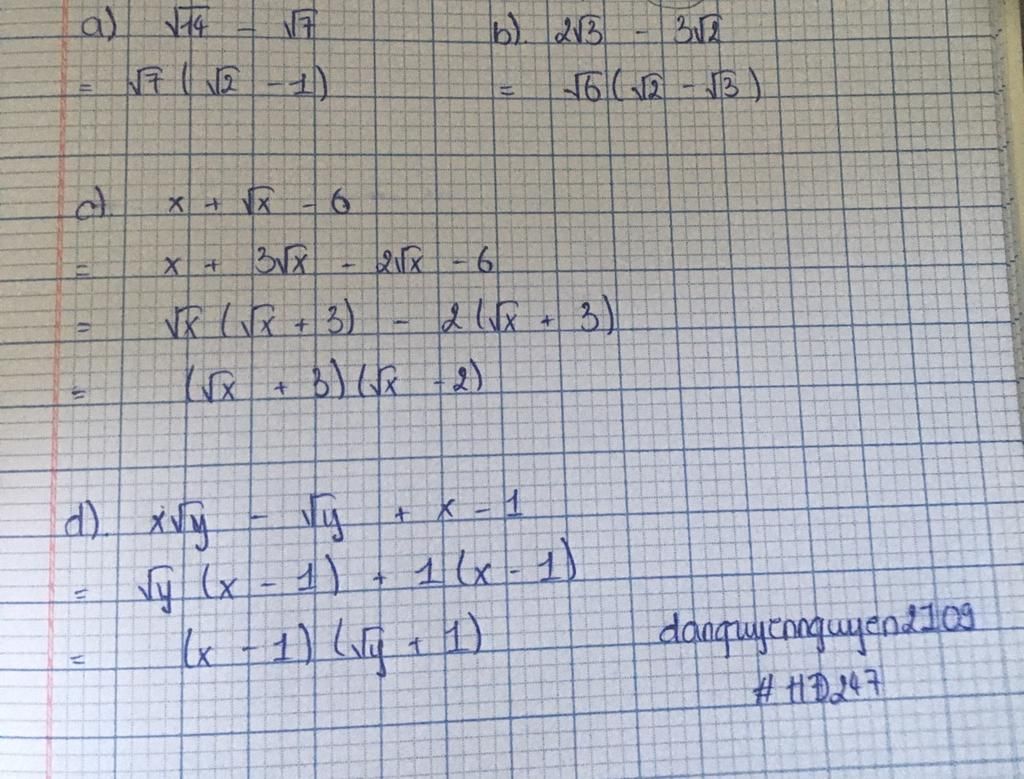 a) √14 - √7
= √7 ( √2 - 1 )
b). 2√3 - 3√2
= √6 ( √2 - √3 )
c). x + √x - 6
= x + 3√x - 2√x - 6
= √x ( √x + 3 ) - 2 ( √x + 3 )
= ( √x + 3 ) ( √x - 2 )
d). x√y - √y + x - 1
= √y ( x - 1 ) + 1 ( x - 1 )
= ( x - 1 ) ( √y + 1 )
danquyennguyen2109
# HD247